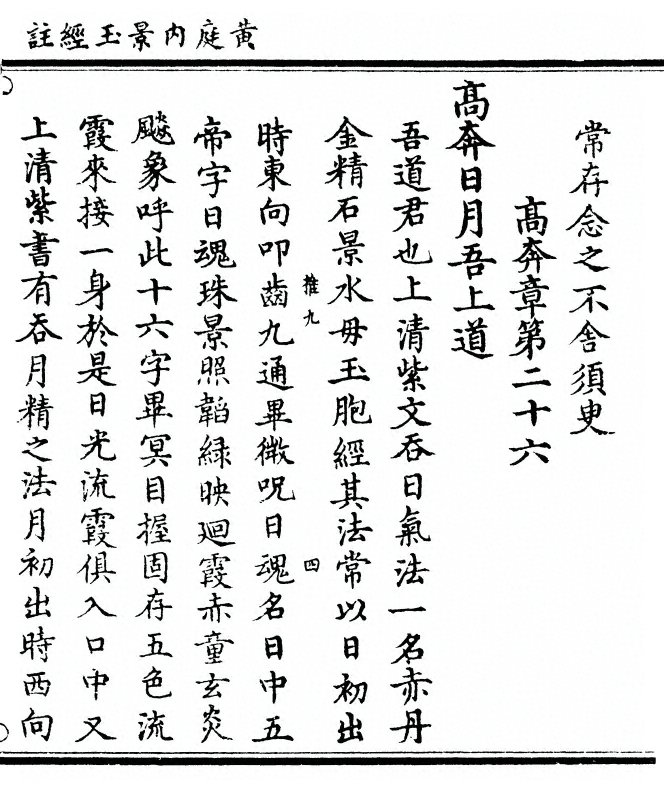 黃庭內景玉經註
常存念之不舍須臾
高奔章第二十六
高奔日月吾上道
吾道君也上清紫文吞日氣法一名赤丹
金精石景水母玉胞經其法常以日初出
時東向叩齒九通畢微呪日魂名日中五
推九 四
帝字日魂珠景照韜綠映迴霞赤童玄炎
飈象呼此十六字畢冥目握固存五色流
霞來接一身於是日光流霞俱入口中又
上清紫書有吞月精之法月初出時西向